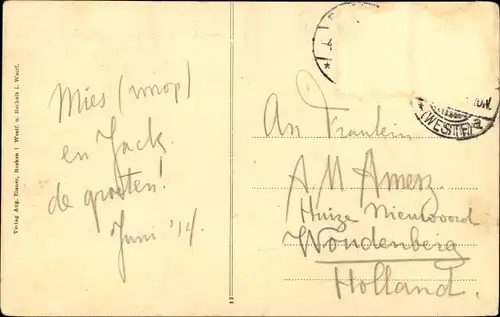 Verlag Aug. Elsner, Borken i. Westf. u. Bocholt i. Westf.
Mies
en Jack
de groeten!
Juni '14.
An Fraulein
A M Amerz.
Huize Nieuwoord
Woudenberg
Holland.
(WESTF.) a